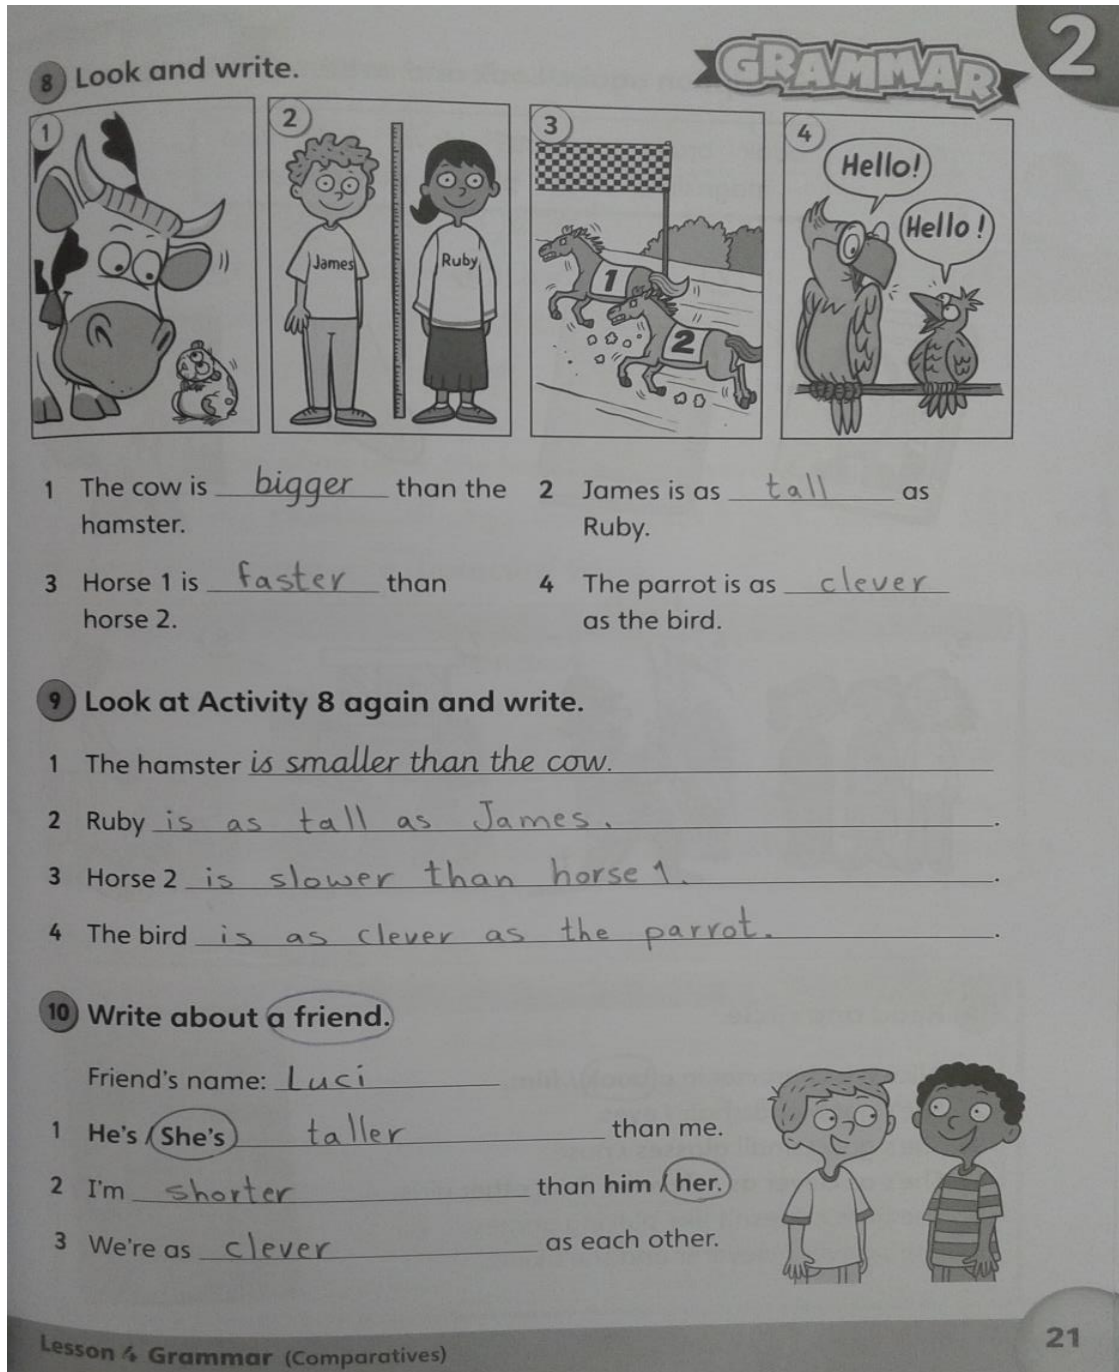 2
GRAMMAR
8 Look and write.
1
2
James
Ruby
3
1
2
4
Hello!
Hello!
1 The cow is bigger than the
hamster.
2 James is as tall as
Ruby.
3 Horse 1 is faster than
horse 2.
4 The parrot is as clever
as the bird.
9 Look at Activity 8 again and write.
1 The hamster is smaller than the cow.
2 Ruby is as tall as James. .
3 Horse 2 is slower than horse 1. .
4 The bird is as clever as the parrot. .
10 Write about a friend.
Friend's name: Luci
1 He's / She's taller than me.
2 I'm shorter than him / her.
3 We're as clever as each other.
Lesson 4 Grammar (Comparatives)
21